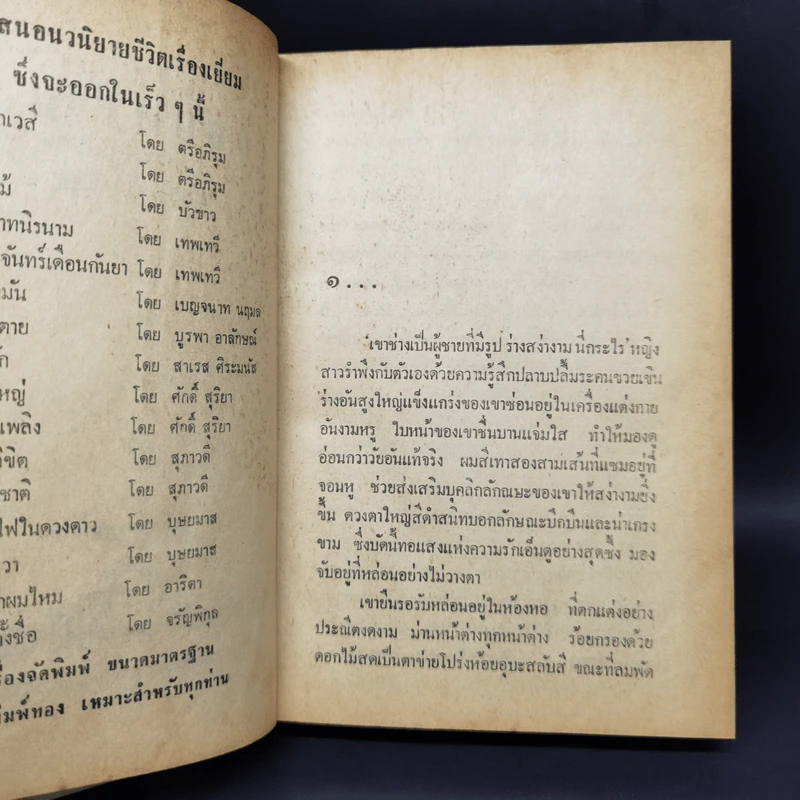 สนอนวนิยายชีวิตเรื่องเยี่ยม
ซึ่งจะออกในเร็ว ๆ นี้
กเวสี โดย ตรีอภิรุม
โดย ตรีอภิรุม
ม้ โดย บัวขาว
าทนิรนาม โดย เทพเทวี
จันทร์เดือนกันยา โดย เทพเทวี
งมัน โดย เบญจนาท นฤมล
ตาย โดย บูรพา อาลักษณ์
รัก โดย สาเรส ศิระมนัส
หญ่ โดย ศักดิ์ สุริยา
เพลิง โดย ศักดิ์ สุริยา
ขิต โดย สุภาวดี
ชาติ โดย สุภาวดี
ไฟในดวงดาว โดย บุษยมาส
วา โดย บุษยมาส
ผมไหม โดย อาริตา
งชื่อ โดย จรัญพิกุล
รื่องจัดพิมพ์ ขนาดมาตรฐาน
พิมพ์ทอง เหมาะสำหรับทุกท่าน
๑ . . .
'เขาช่างเป็นผู้ชายที่มีรูป ร่างสง่างาม นี่กระไร' หญิง
สาวรำพึงกับตัวเองด้วยความรู้สึกปลาบปลื้มระคนขวยเขิน
ร่างอันสูงใหญ่แข็งแกร่งของเขาซ่อนอยู่ในเครื่องแต่งกาย
อันงามหรู ใบหน้าของเขาชื่นบานแจ่มใส ทำให้มองดู
อ่อนกว่าวัยอันแท้จริง ผมสีเทาสองสามเส้นที่แซมอยู่ที่
จอนหู ช่วยส่งเสริมบุคลิกลักณษะของเขาให้สง่างามยิ่ง
ขึ้น ดวงตาใหญ่สีดำสนิทบอกลักษณะบึกบึนและน่าเกรง
ขาม ซึ่งบัดนี้ทอแสงแห่งความรักเอ็นดูอย่างสุดซึ้ง มอง
จับอยู่ที่หล่อนอย่างไม่วางตา
เขายืนรอรับหล่อนอยู่ในห้องหอ ที่ตกแต่งอย่าง
ประณีตงดงาม ม่านหน้าต่างทุกหน้าต่าง ร้อยกรองด้วย
ดอกไม้สดเป็นตาข่ายโปร่งห้อยอุบะสลับสี ขณะที่ลมพัด